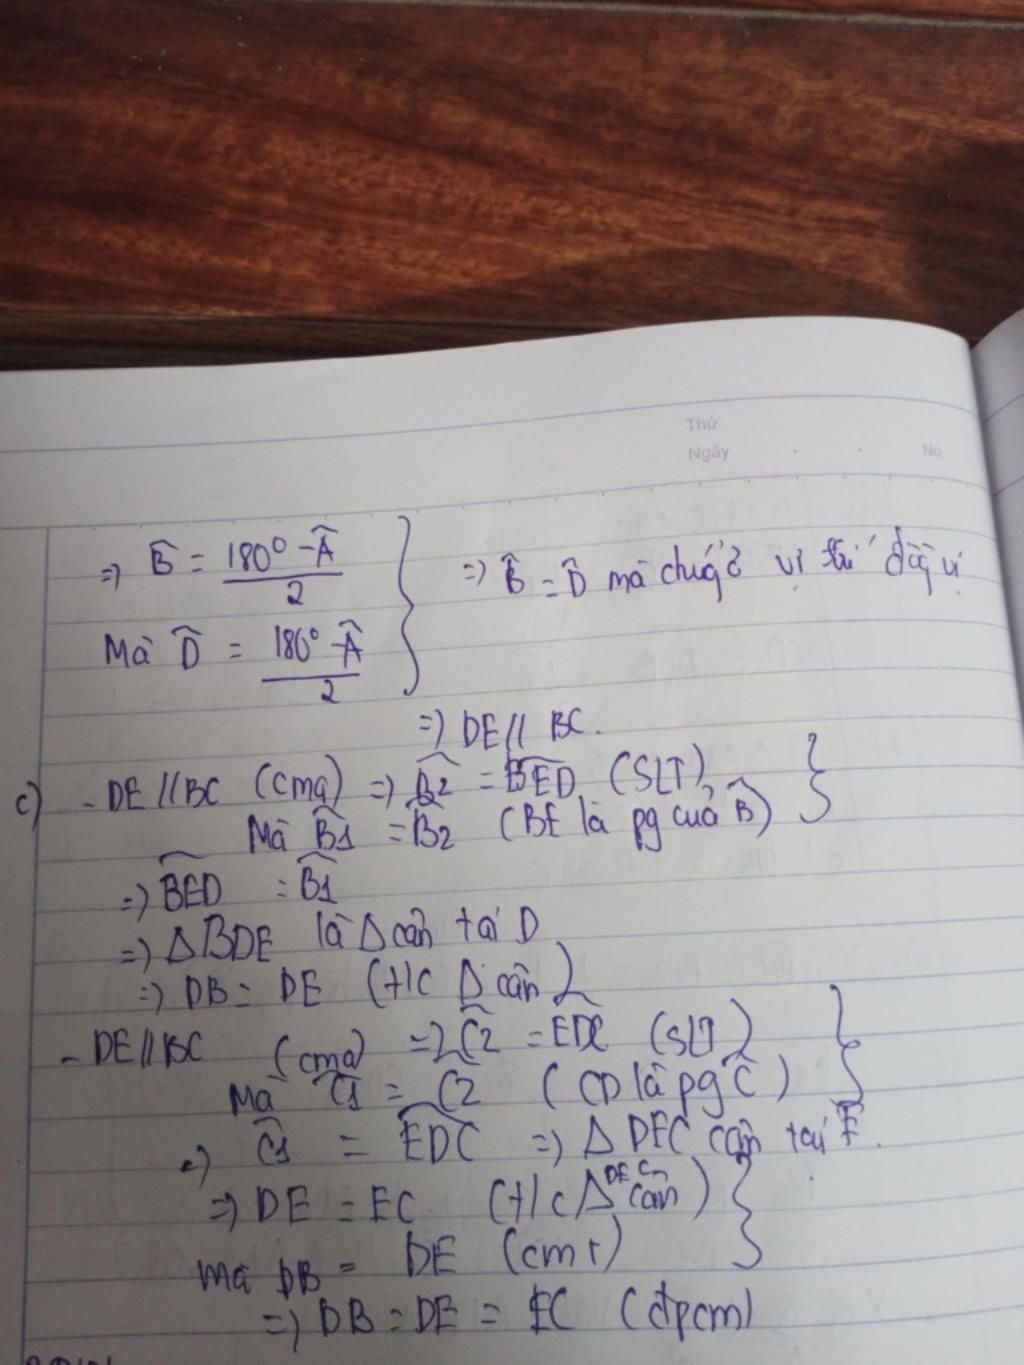 Thứ
Ngày No.
=) B̂ = 180° - Â / 2 =) B̂ = D̂ mà chúng ở vị trí đồng vị
Mà D̂ = 180° - Â / 2
=) DE // BC.
c) - DE // BC (cma) =) B̂2 = BED (SLT),
Mà B̂1 = B̂2 (BE là pg của B̂)
=) BED = B̂1
=) Δ BDE là Δ cân tại D
=) DB = DE (t/c Δ cân)
- DE // BC (cma) =) Ĉ2 = EDC (SLT)
Mà Ĉ1 = Ĉ2 (CD là pg Ĉ)
=) Ĉ1 = EDC =) Δ DEC cân tại E.
=) DE = EC (t/c Δ DEC cân)
mà DB = DE (cmt)
=) DB = DE = EC (đpcm)